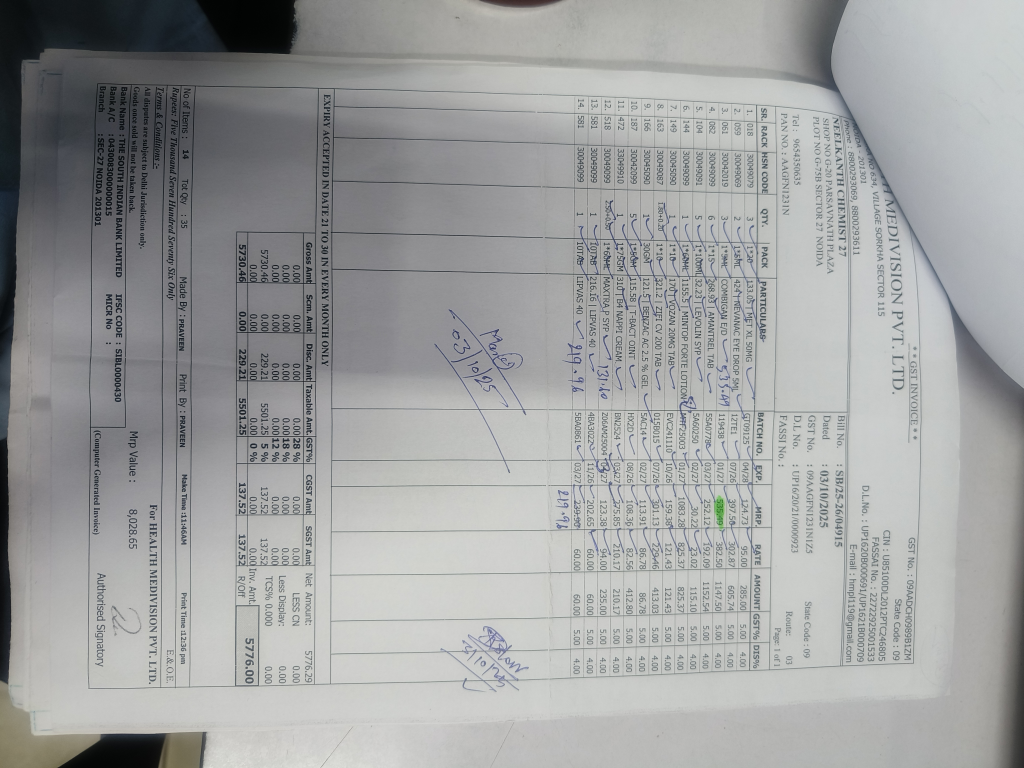 ** GST INVOICE **
H MEDIVISION PVT. LTD.
634, VILLAGE SORKHA SECTOR 115
NOIDA - 201301
Phone : 8800293069, 8800293611
GST No. : 09AADCH9899B1ZM
State Code : 09
CIN : U85100DL2012PTC248805
FASSAI No. : 22722925001533
D.L.No. : UP1620B000691/UP1621B000709
E-mail : hmpl119@gmail.com
NEELKANTH CHEMIST 27
SHOP NO G-20 PARSAVNATH PLAZA
PLOT NO G-75B SECTOR 27 NOIDA
Tel : 9654350635
PAN NO. : AAGFN1231N
Bill No. : SB/25-26/04915
Dated : 03/10/2025
GST No. : 09AAGFN1231N1Z5
D.L No. : UP16/20/21/0000923
FASSI No. :
State Code : 09
Route: 03
Page: 1 of 1
SR. RACK HSN CODE QTY. PACK PARTICULARS BATCH NO. EXP. MRP. RATE AMOUNT GST% DIS%
1. 018 30049079 3 1*20 133.05 MET XL 50MG 04/28 124.73 95.00 285.00 5.00 4.00
2. 059 30049099 2 1*5ML NEVANAC EYE DROP 5ML 12TEL 07/26 397.56 302.87 605.74 5.00 4.00
3. 061 30042019 3 1*5ML COMBIGAN E/D 119438 01/27 535.49 382.50 1147.50 5.00 4.00
4. 082 30049099 6 268.93 AMANTREL TAB 03/27 252.12 192.09 1152.54 5.00 4.00
5. 104 30049091 5 1*100ML 32.23 LEVOLIN SYP 5A60250 02/27 30.22 23.02 115.10 5.00 4.00
6. 144 30049099 1 1155.5 MINTOP FORTE LOTION 01/27 1083.28 825.37 825.37 5.00 4.00
7. 149 30045090 1 1*10 170 VOZAN 20MG TAB EVC241110 10/26 159.38 121.43 121.43 5.00 4.00
8. 163 30049087 1*10 321.21 ZIFI CV 200 TAB 07/26 301.13 413.03 5.00 4.00
9. 166 30045090 1 30GM 121.5 BENZAC AC 2.5 % GEL 5AC14 02/27 113.91 86.78 86.78 5.00 4.00
10. 187 30042099 5 115.58 T-BACT OINT HX2D 08/26 108.36 82.56 412.80 5.00 4.00
11. 472 30049910 1 1*75GM B4 NAPPI CREAM BN2524 03/27 275.85 210.17 210.17 5.00 4.00
12. 518 30049099 1*60ML MAXTRA P SYP 131.60 03/27 123.38 94.00 235.00 5.00 4.00
13. 581 30049099 1 10TAB 216.16 LIPVAS 40 11/26 202.65 60.00 60.00 5.00 4.00
14. 581 30049099 1 10TAB LIPVAS 40 219.96 5BA0861 03/27 60.00 60.00 5.00 4.00
219.96
03/10/25
EXPIRY ACCEPTED IN DATE 21 TO 30 IN EVERY MONTH ONLY
Gross Amt Scm. Amt Disc. Amt Taxable Amt GST% CGST Amt SGST Amt
0.00 0.00 0.00 28 % 0.00 0.00
0.00 0.00 0.00 18 % 0.00 0.00
0.00 0.00 0.00 12 % 0.00 0.00
5730.46 229.21 5501.25 5 % 137.52 137.52
0.00 0.00 0.00 0 % 0.00 0.00
5730.46 0.00 229.21 5501.25 137.52 137.52
Net Amount: 5776.29
LESS CN 0.00
Less Display: 0.00
TCS% 0.000 0.00
R/Off
Inv. Amt. 5776.00
No of Items : 14 Tot Qty : 35 Made By : PRAVEEN Print By : PRAVEEN Make Time :11:46AM Print Time :12:36 pm
Rupees: Five Thousand Seven Hundred Seventy Six Only
E.& O.E.
Terms & Conditions :-
All disputes are subject to Delhi Jurisdiction only.
Goods once sold will not be taken back.
Bank Name : THE SOUTH INDIAN BANK LIMITED IFSC CODE : SIBL0000430
Bank A/C : 0430083000000015 MICR No :
Branch : SEC-27 NOIDA 201301
Mrp Value : 8,028.65
(Computer Generated Invoice)
For HEALTH MEDIVISION PVT. LTD.
Authorised Signatory